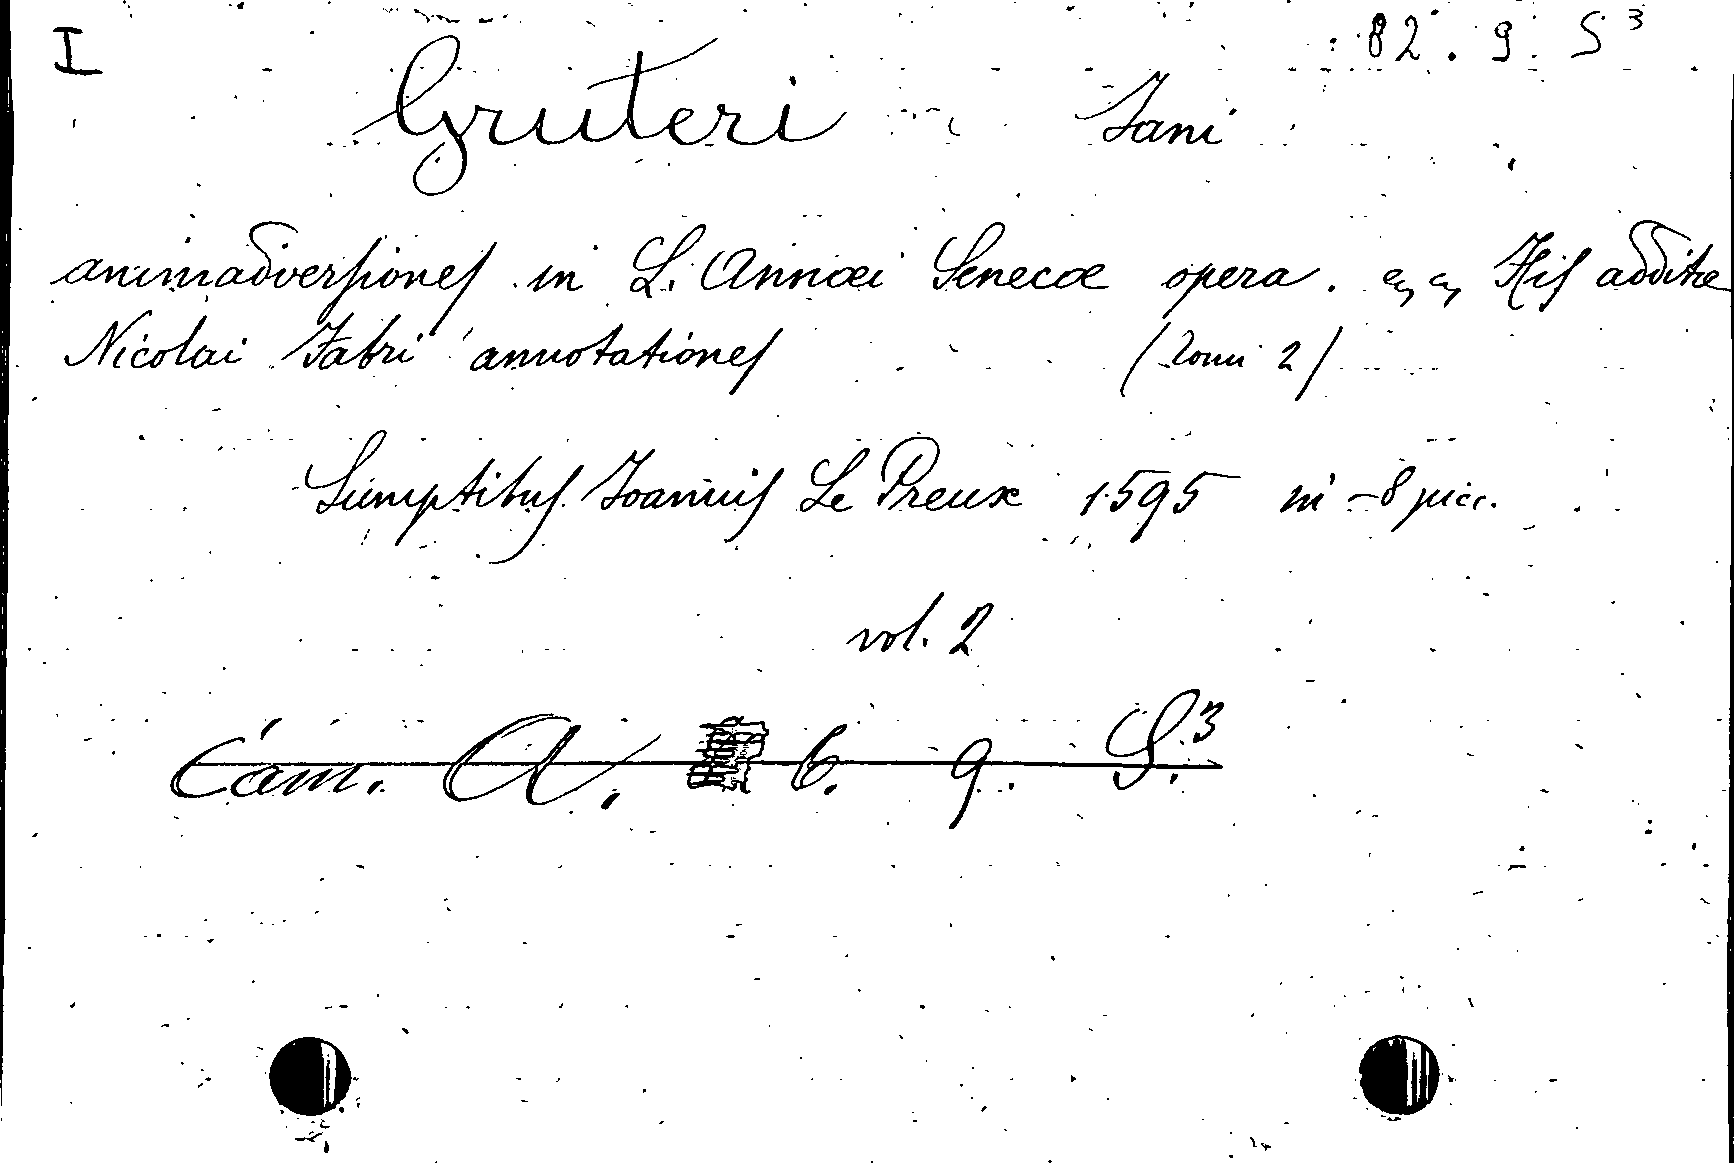 I 82. 9. S 3
Gruteri Jani
animadversiones in L. Annæi Senecæ opera. His additæ
Nicolai Fabri annotationes (Tomi 2)
Sumptibus Joannis Le Preux 1595 in-8 picc.
vol. 2
Cam. A. 6. 9. S.3